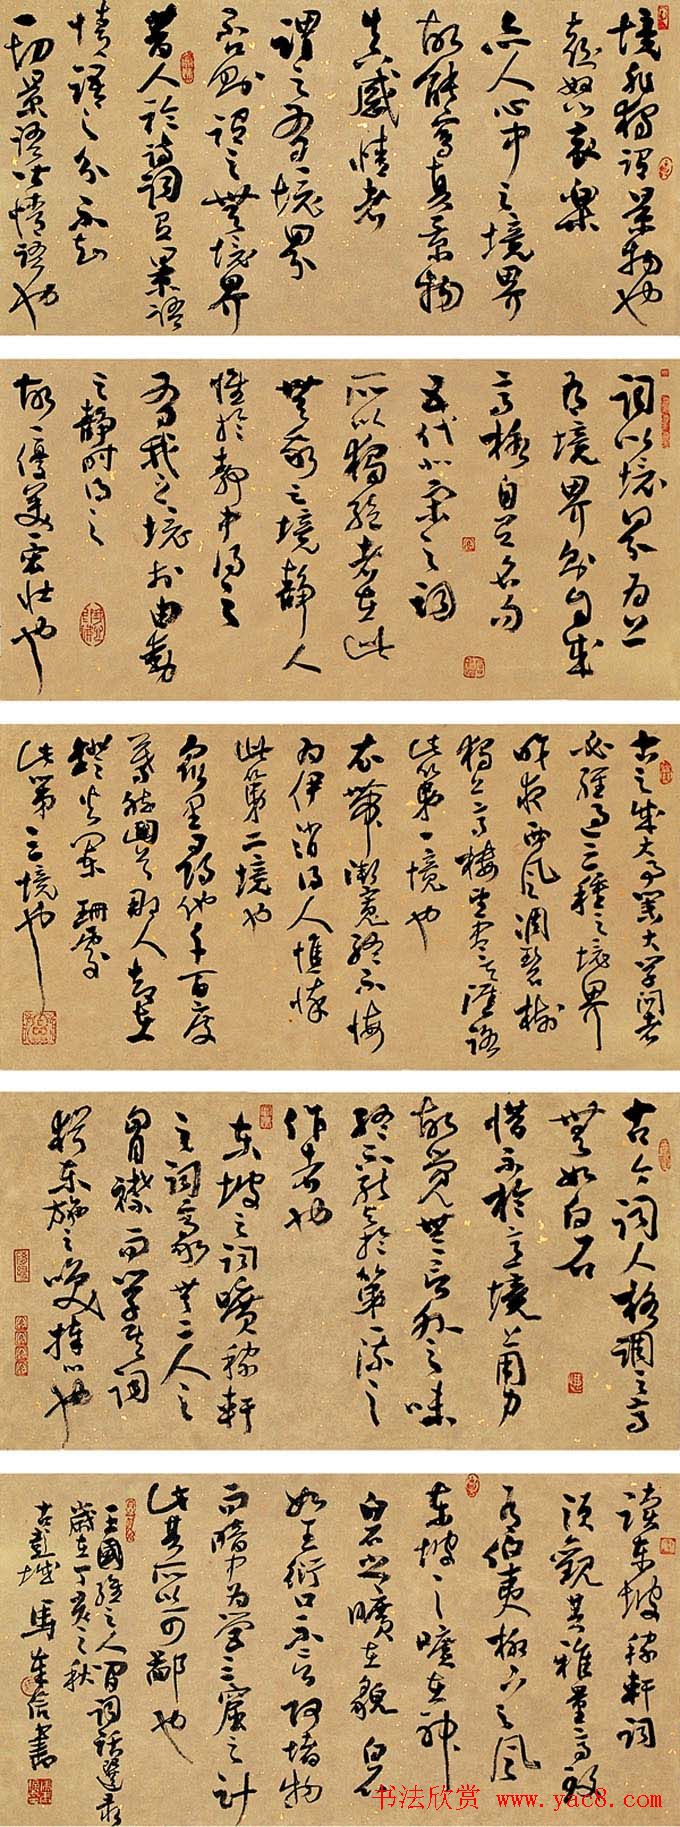 境非独谓景物也
喜怒哀樂
亦人心中之境界
故能寫真景物
真感情者
谓之有境界
否则谓之無境界
昔人論詩詞有景語
情語之分不知
一切景語皆情語也
词以境界为上
有境界則自成
高格自有名句
五代北宋之詞
所以獨絶者在此
無我之境静人
惟於静中得之
有我之境於由動
之静时得之
故一優美一宏壮也
古之成大事業大学问者
必經过三種之境界
昨夜西风凋碧樹
獨上高樓望盡天涯路
此第一境也
衣帶漸寬終不悔
为伊消得人憔悴
此第二境也
眾里尋他千百度
驀然回首那人却在
燈火闌珊處
此第三境也
古今词人格調之高
無如白石
惜不於意境上用力
故覺無言外之味
終不能与於第一流之
作者也
东坡之词曠稼軒
之詞豪無二人之
胸襟而学其词
猶东施之效捧心也
读东坡稼軒词
须觀其雅量高致
有伯夷柳下之风
东坡之曠在神
白石之曠在貌白石
如王衍口不言阿堵物
而暗中为营三窟之计
此其所以可鄙也
王國維之人间词話選录
歲在丁亥之秋
古彭城 馬
书法欣赏 www.yac8.com